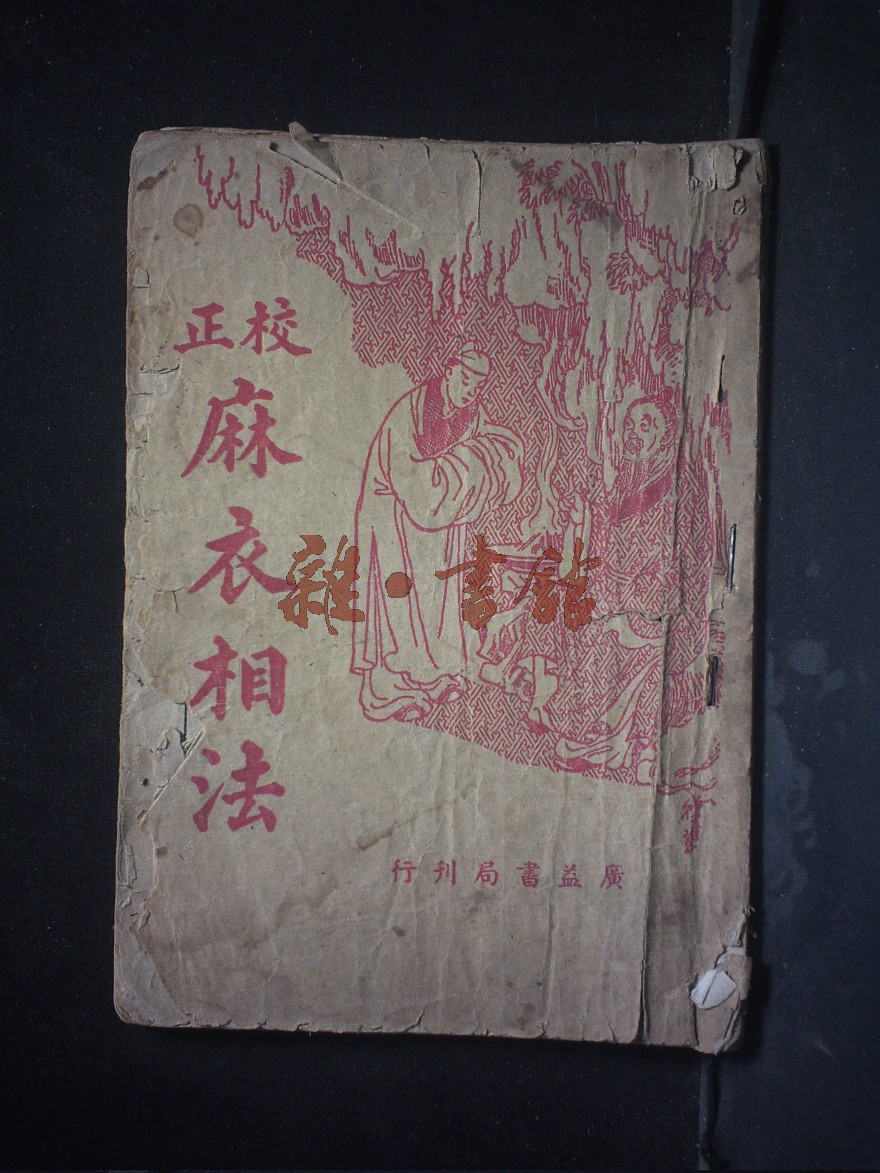 校正
麻衣相法
雜·書館
廣益書局刊行